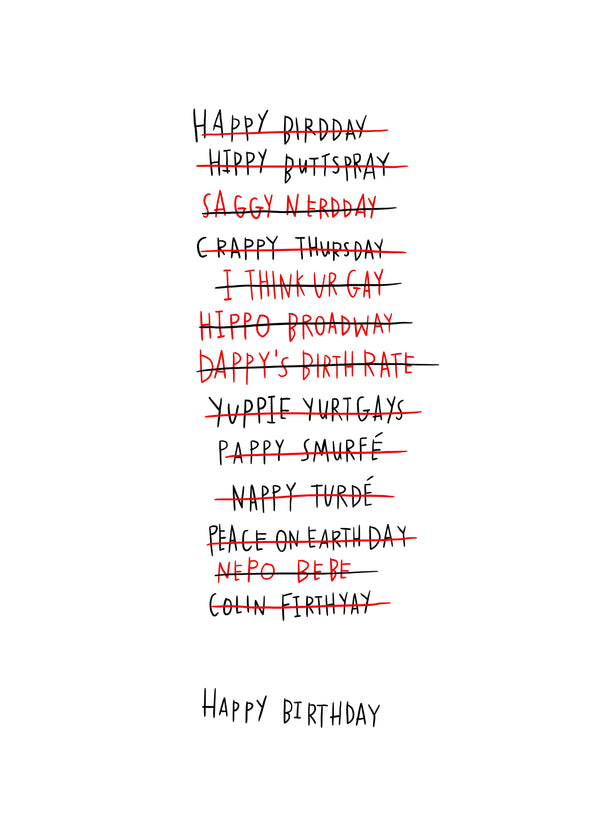 HAPPY BIRDDAY
HIPPY BUTTSPRAY
SAGGY NERDDAY
CRAPPY THURSDAY
I THINK UR GAY
HIPPO BROADWAY
DAPPY'S BIRTH RATE
YUPPIE YURTGAYS
PAPPY SMURFÉ
NAPPY TURDÉ
PEACE ON EARTH DAY
NEPO BEBE
COLIN FIRTHYAY
HAPPY BIRTHDAY